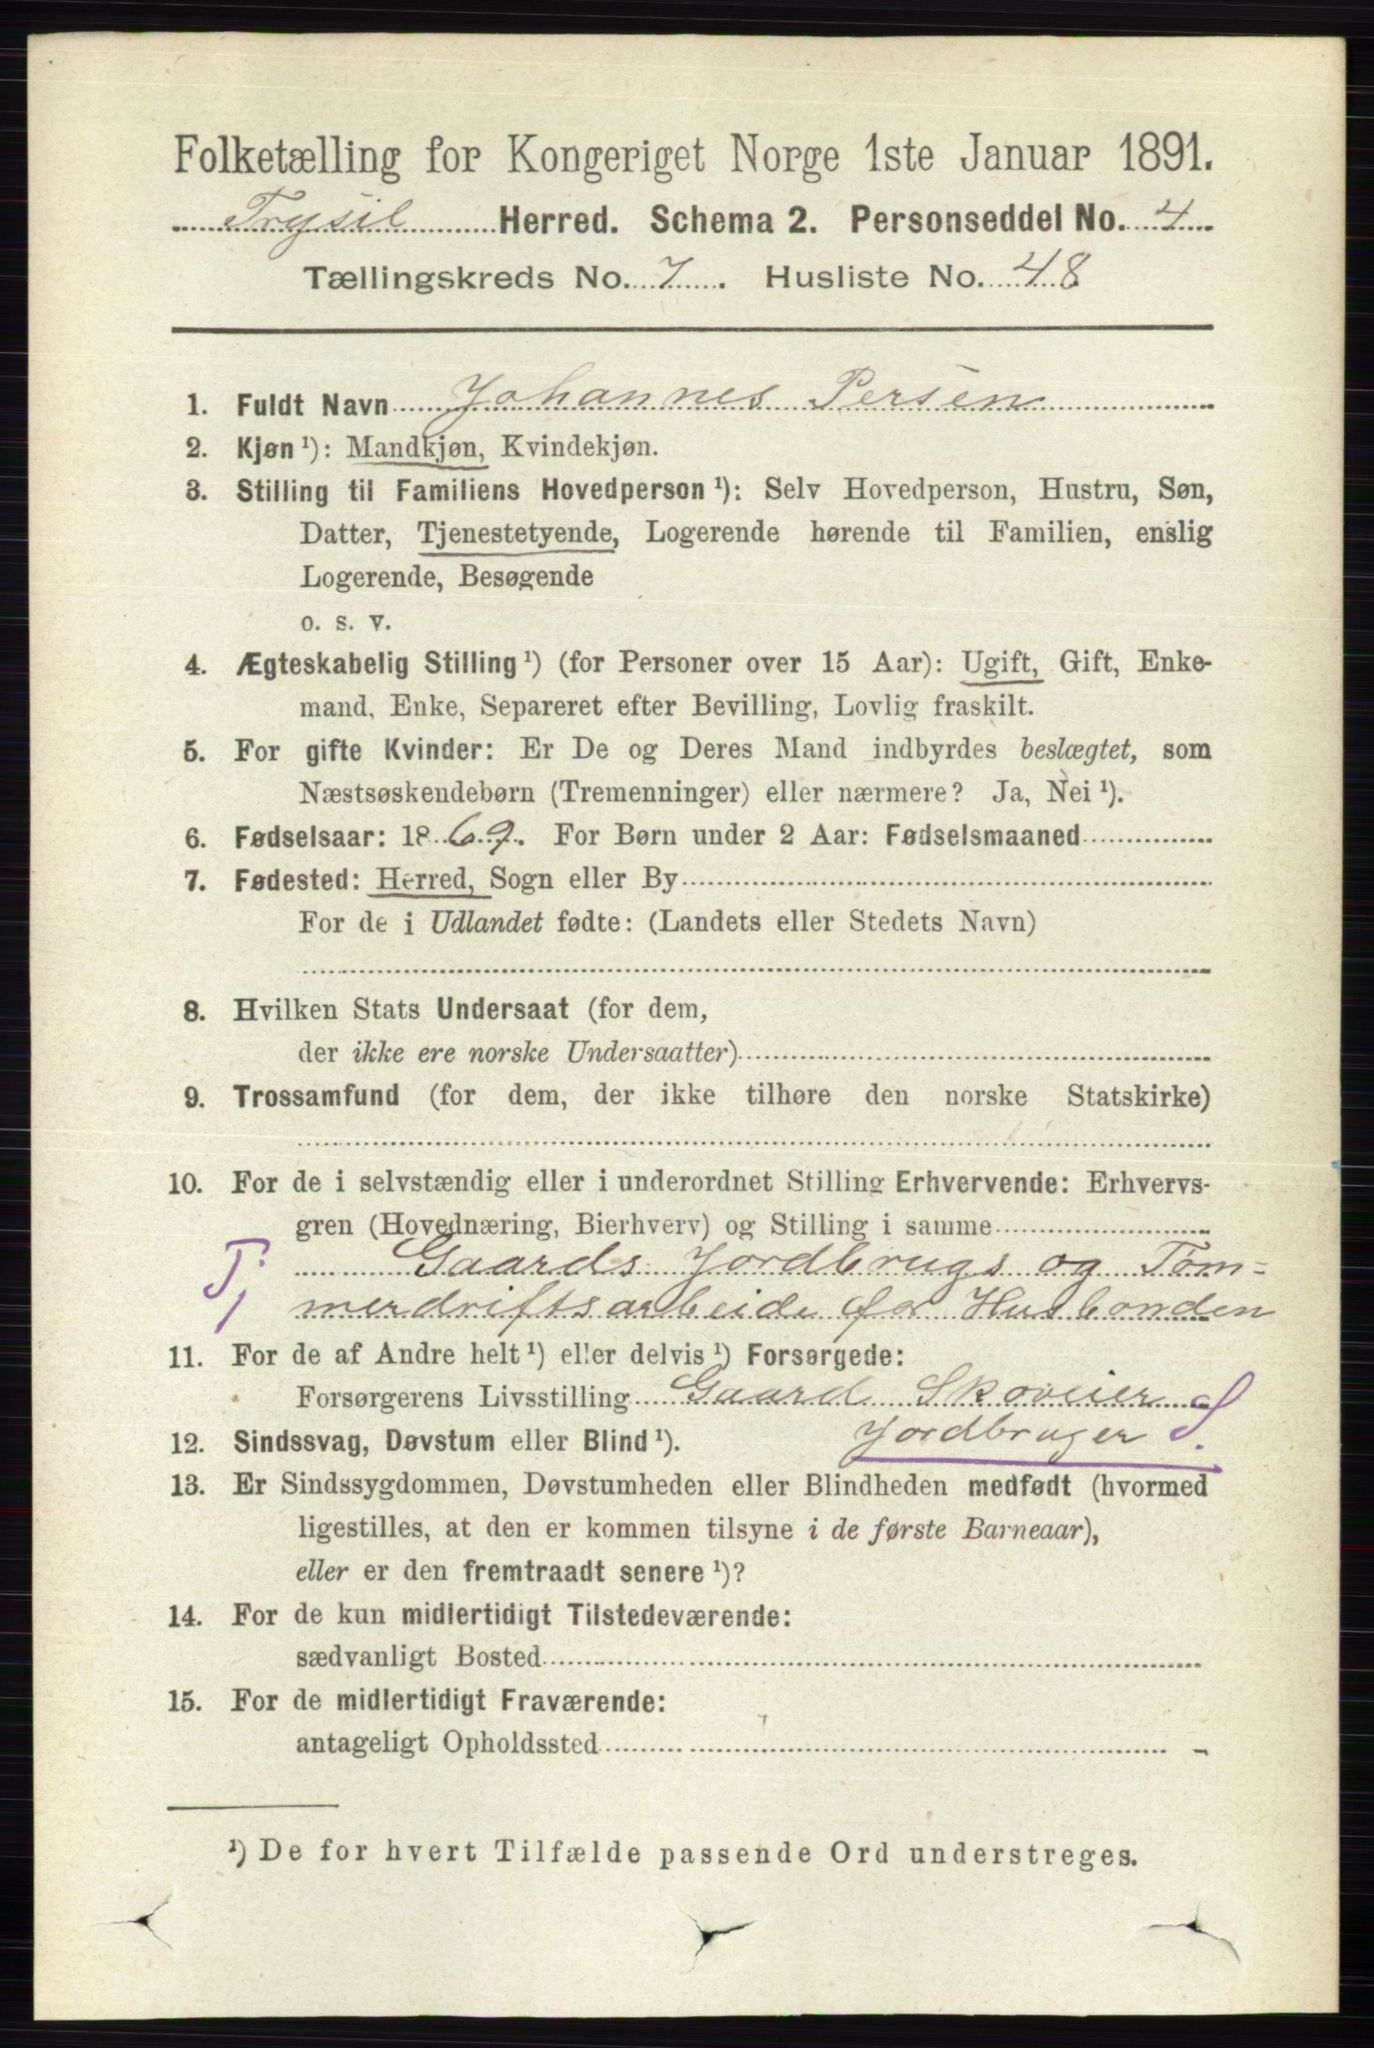 Folketælling for Kongeriget Norge 1ste Januar 1891.
Trysil Herred. Schema 2. Personseddel No. 4
Tællingskreds No. 7. Husliste No. 48
1. Fuldt Navn Johannes Persen
2. Kjøn ¹): Mandkjøn, Kvindekjøn.
3. Stilling til Familiens Hovedperson ¹): Selv Hovedperson, Hustru, Søn,
Datter, Tjenestetyende, Logerende hørende til Familien, enslig
Logerende, Besøgende
o. s. v.
4. Ægteskabelig Stilling ¹) (for Personer over 15 Aar): Ugift, Gift, Enke-
mand, Enke, Separeret efter Bevilling, Lovlig fraskilt.
5. For gifte Kvinder: Er De og Deres Mand indbyrdes beslægtet, som
Næstsøskendebørn (Tremenninger) eller nærmere? Ja, Nei ¹).
6. Fødselsaar: 1869. For Børn under 2 Aar: Fødselsmaaned
7. Fødested: Herred, Sogn eller By
For de i Udlandet fødte: (Landets eller Stedets Navn)
8. Hvilken Stats Undersaat (for dem,
der ikke ere norske Undersaatter)
9. Trossamfund (for dem, der ikke tilhøre den norske Statskirke)
10. For de i selvstændig eller i underordnet Stilling Erhvervende: Erhvervs-
gren (Hovednæring, Bierhverv) og Stilling i samme
Tj Gaards Jordbrugs og Töm-
merdriftsarbeide for Husbonden
11. For de af Andre helt ¹) eller delvis ¹) Forsørgede:
Forsørgerens Livsstilling Gaard Skoveier S.
12. Sindssvag, Døvstum eller Blind ¹). Jordbruger
13. Er Sindssygdommen, Døvstumheden eller Blindheden medfødt (hvormed
ligestilles, at den er kommen tilsyne i de første Barneaar),
eller er den fremtraadt senere ¹)?
14. For de kun midlertidigt Tilstedeværende:
sædvanligt Bosted
15. For de midlertidigt Fraværende:
antageligt Opholdssted
¹) De for hvert Tilfælde passende Ord understreges.